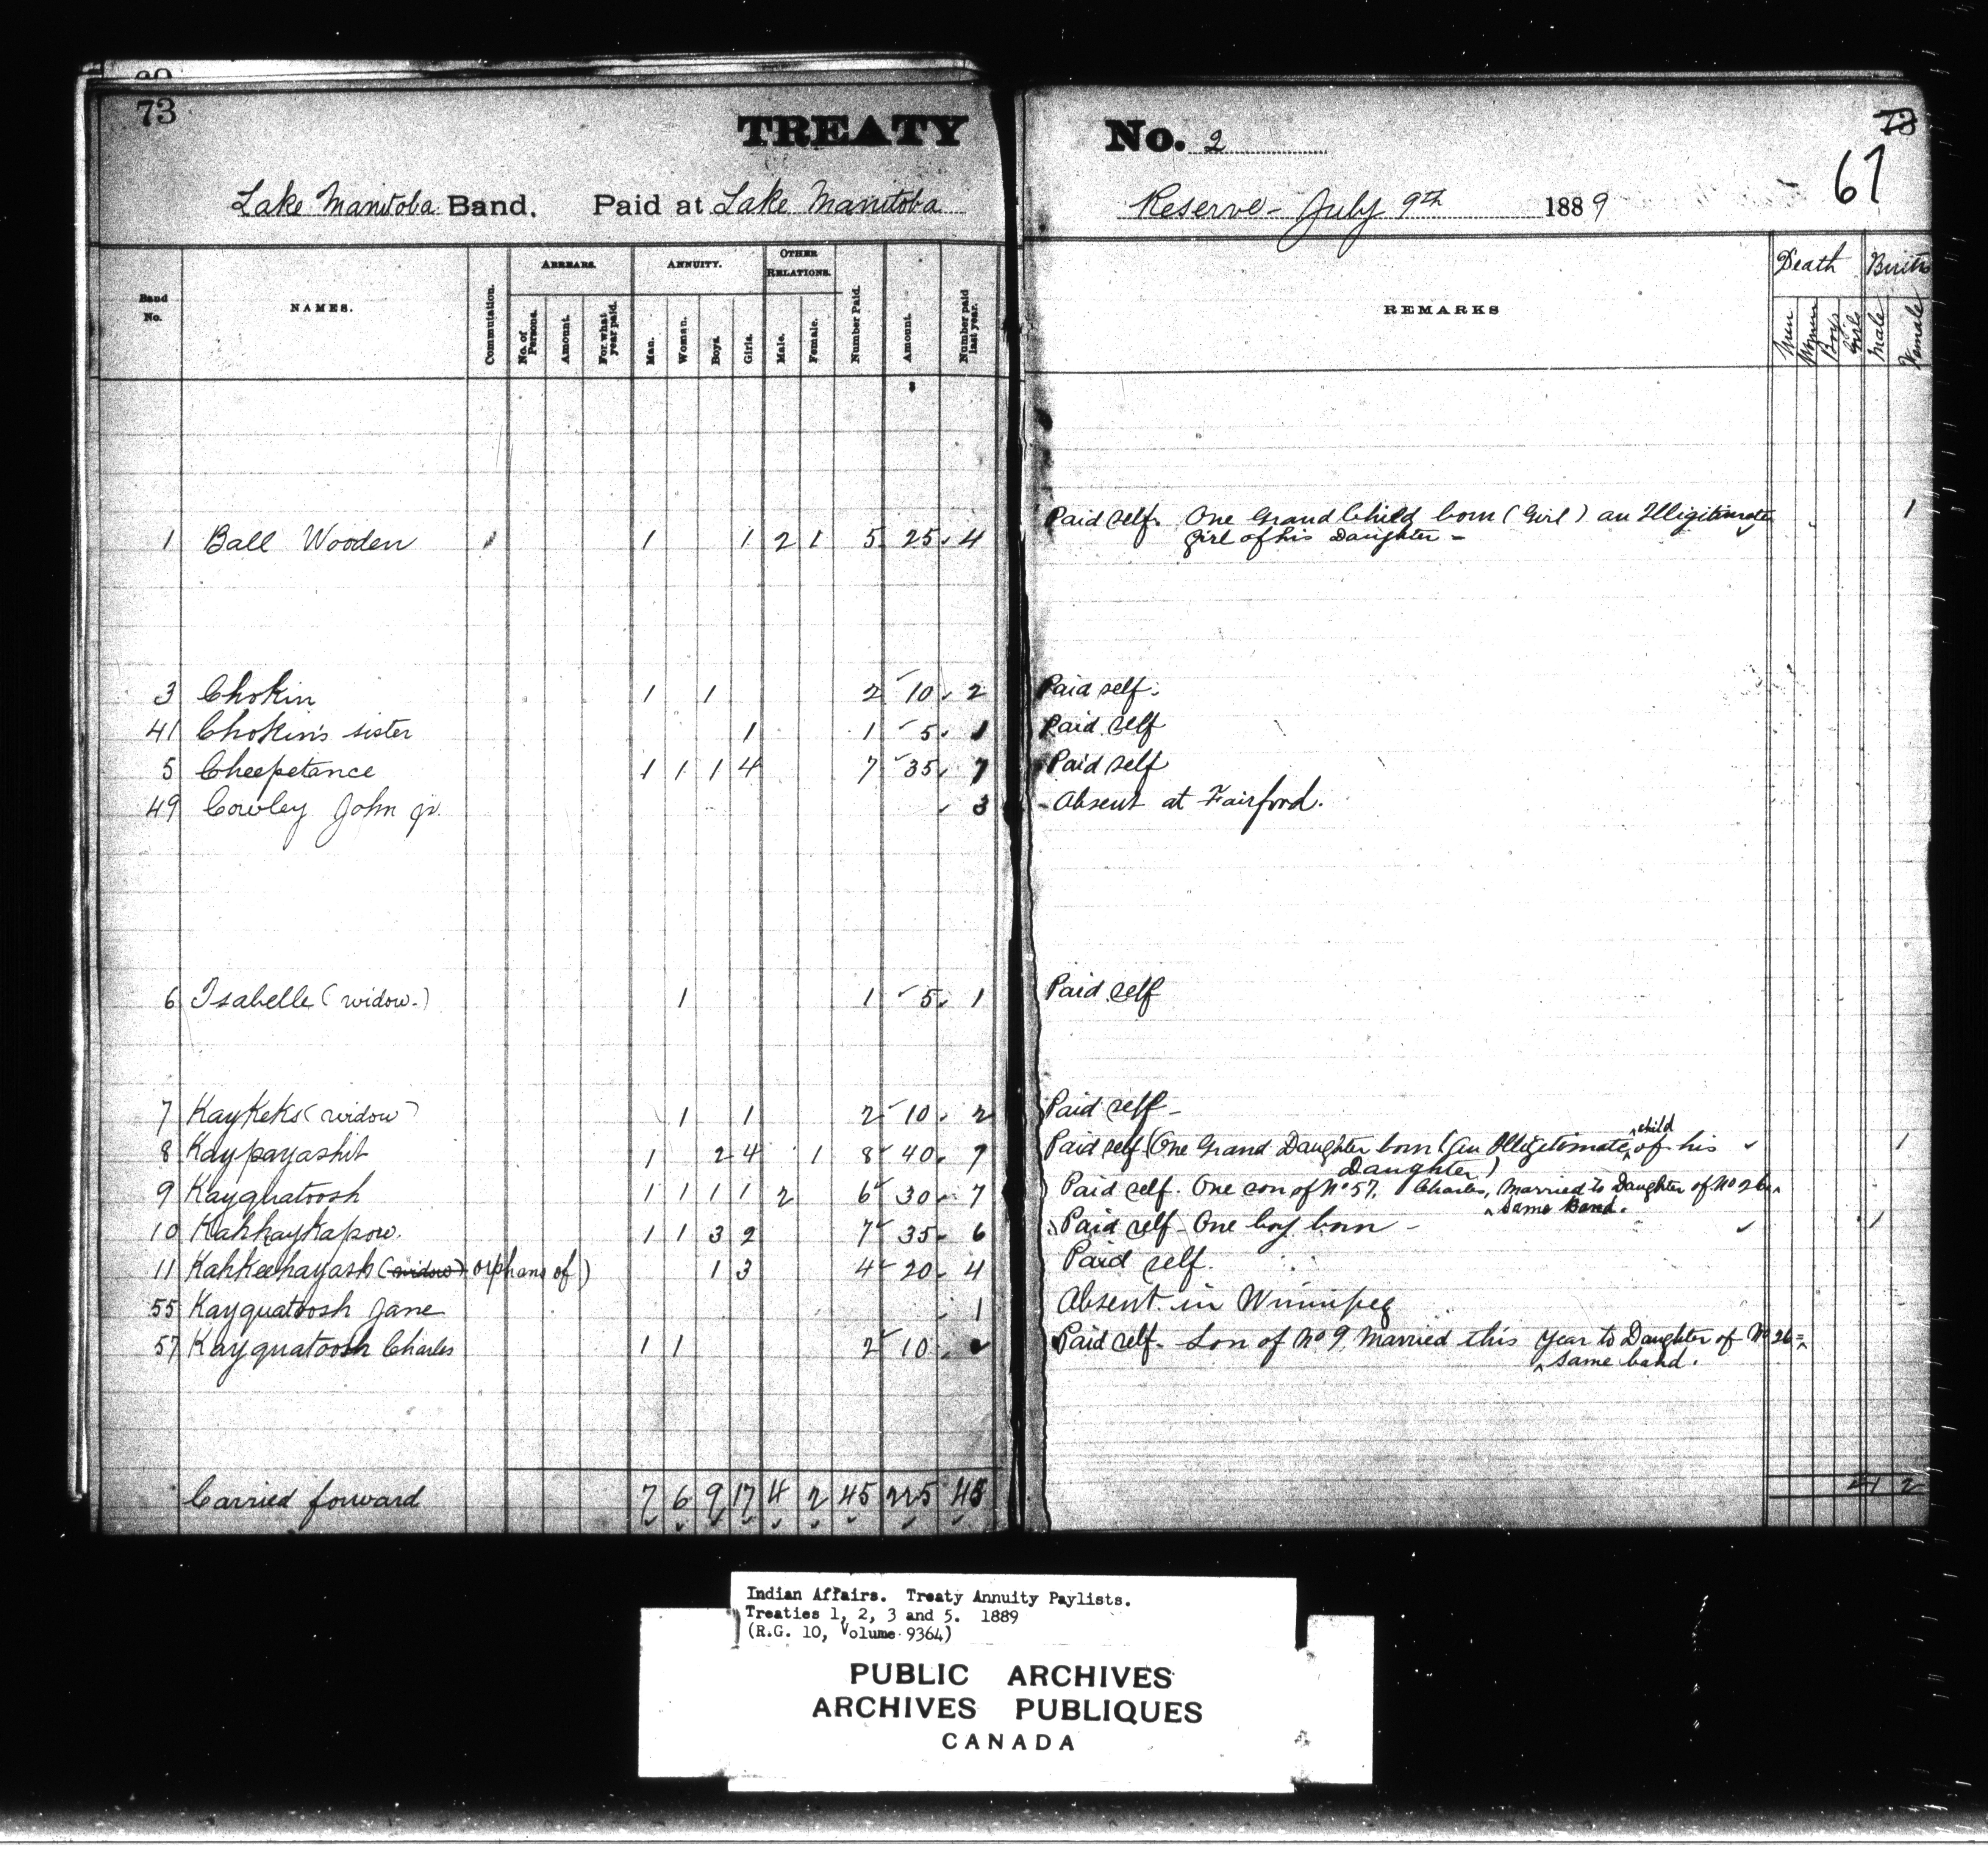 73
TREATY No. 2
73
67
Lake Manitoba Band. Paid at Lake Manitoba Reserve - July 9th 1889
Band No. NAMES. Commutation. ARREARS. No. of Persons. Amount. For what year paid. ANNUITY. Man. Woman. Boys. Girls. OTHER RELATIONS. Male. Female. Number Paid. Amount. Number paid last year. REMARKS Death Men Women Boys Girls Births Male Female
1 Ball Wooden 1 1 2 1 5 25 4 Paid self. One Grand Child born (Girl) an Illigitimate 1
girl of his Daughter -
3 Chokin 1 1 2 10 2 Paid self.
41 Chokin's sister 1 1 5 1 Paid self
5 Cheepetance 1 1 1 4 7 35 7 Paid self
49 Cowley John jr. 3 - Absent at Fairford.
6 Isabelle (widow-) 1 1 5 1 Paid self
7 Kaykeks (widow) 1 1 2 10 2 Paid self -
8 Kaypayashit 1 2 4 1 8 40 7 Paid self (One Grand Daughter born (an Illigitimate child of his 1
Daughter)
9 Kayquatoosh 1 1 1 1 2 6 30 7 Paid self. One son of No 57. Charles, married to Daughter of No 26
same Band.
10 Kahkaykapow. 1 1 3 2 7 35 6 Paid self - One boy born - 1
11 Kahkeehayash (widow) orphans of) 1 3 4 20 4 Paid self.
55 Kayquatoosh Jane 1 Absent in Winnipeg
57 Kayquatoosh Charles 1 1 2 10 Paid self. Son of No 9. Married this year to Daughter of No 26
same band.
Carried forward 7 6 9 17 4 2 45 225 45 1 2
Indian Affairs. Treaty Annuity Paylists.
Treaties 1, 2, 3 and 5. 1889
(R.G. 10, Volume 9364)
PUBLIC ARCHIVES
ARCHIVES PUBLIQUES
CANADA